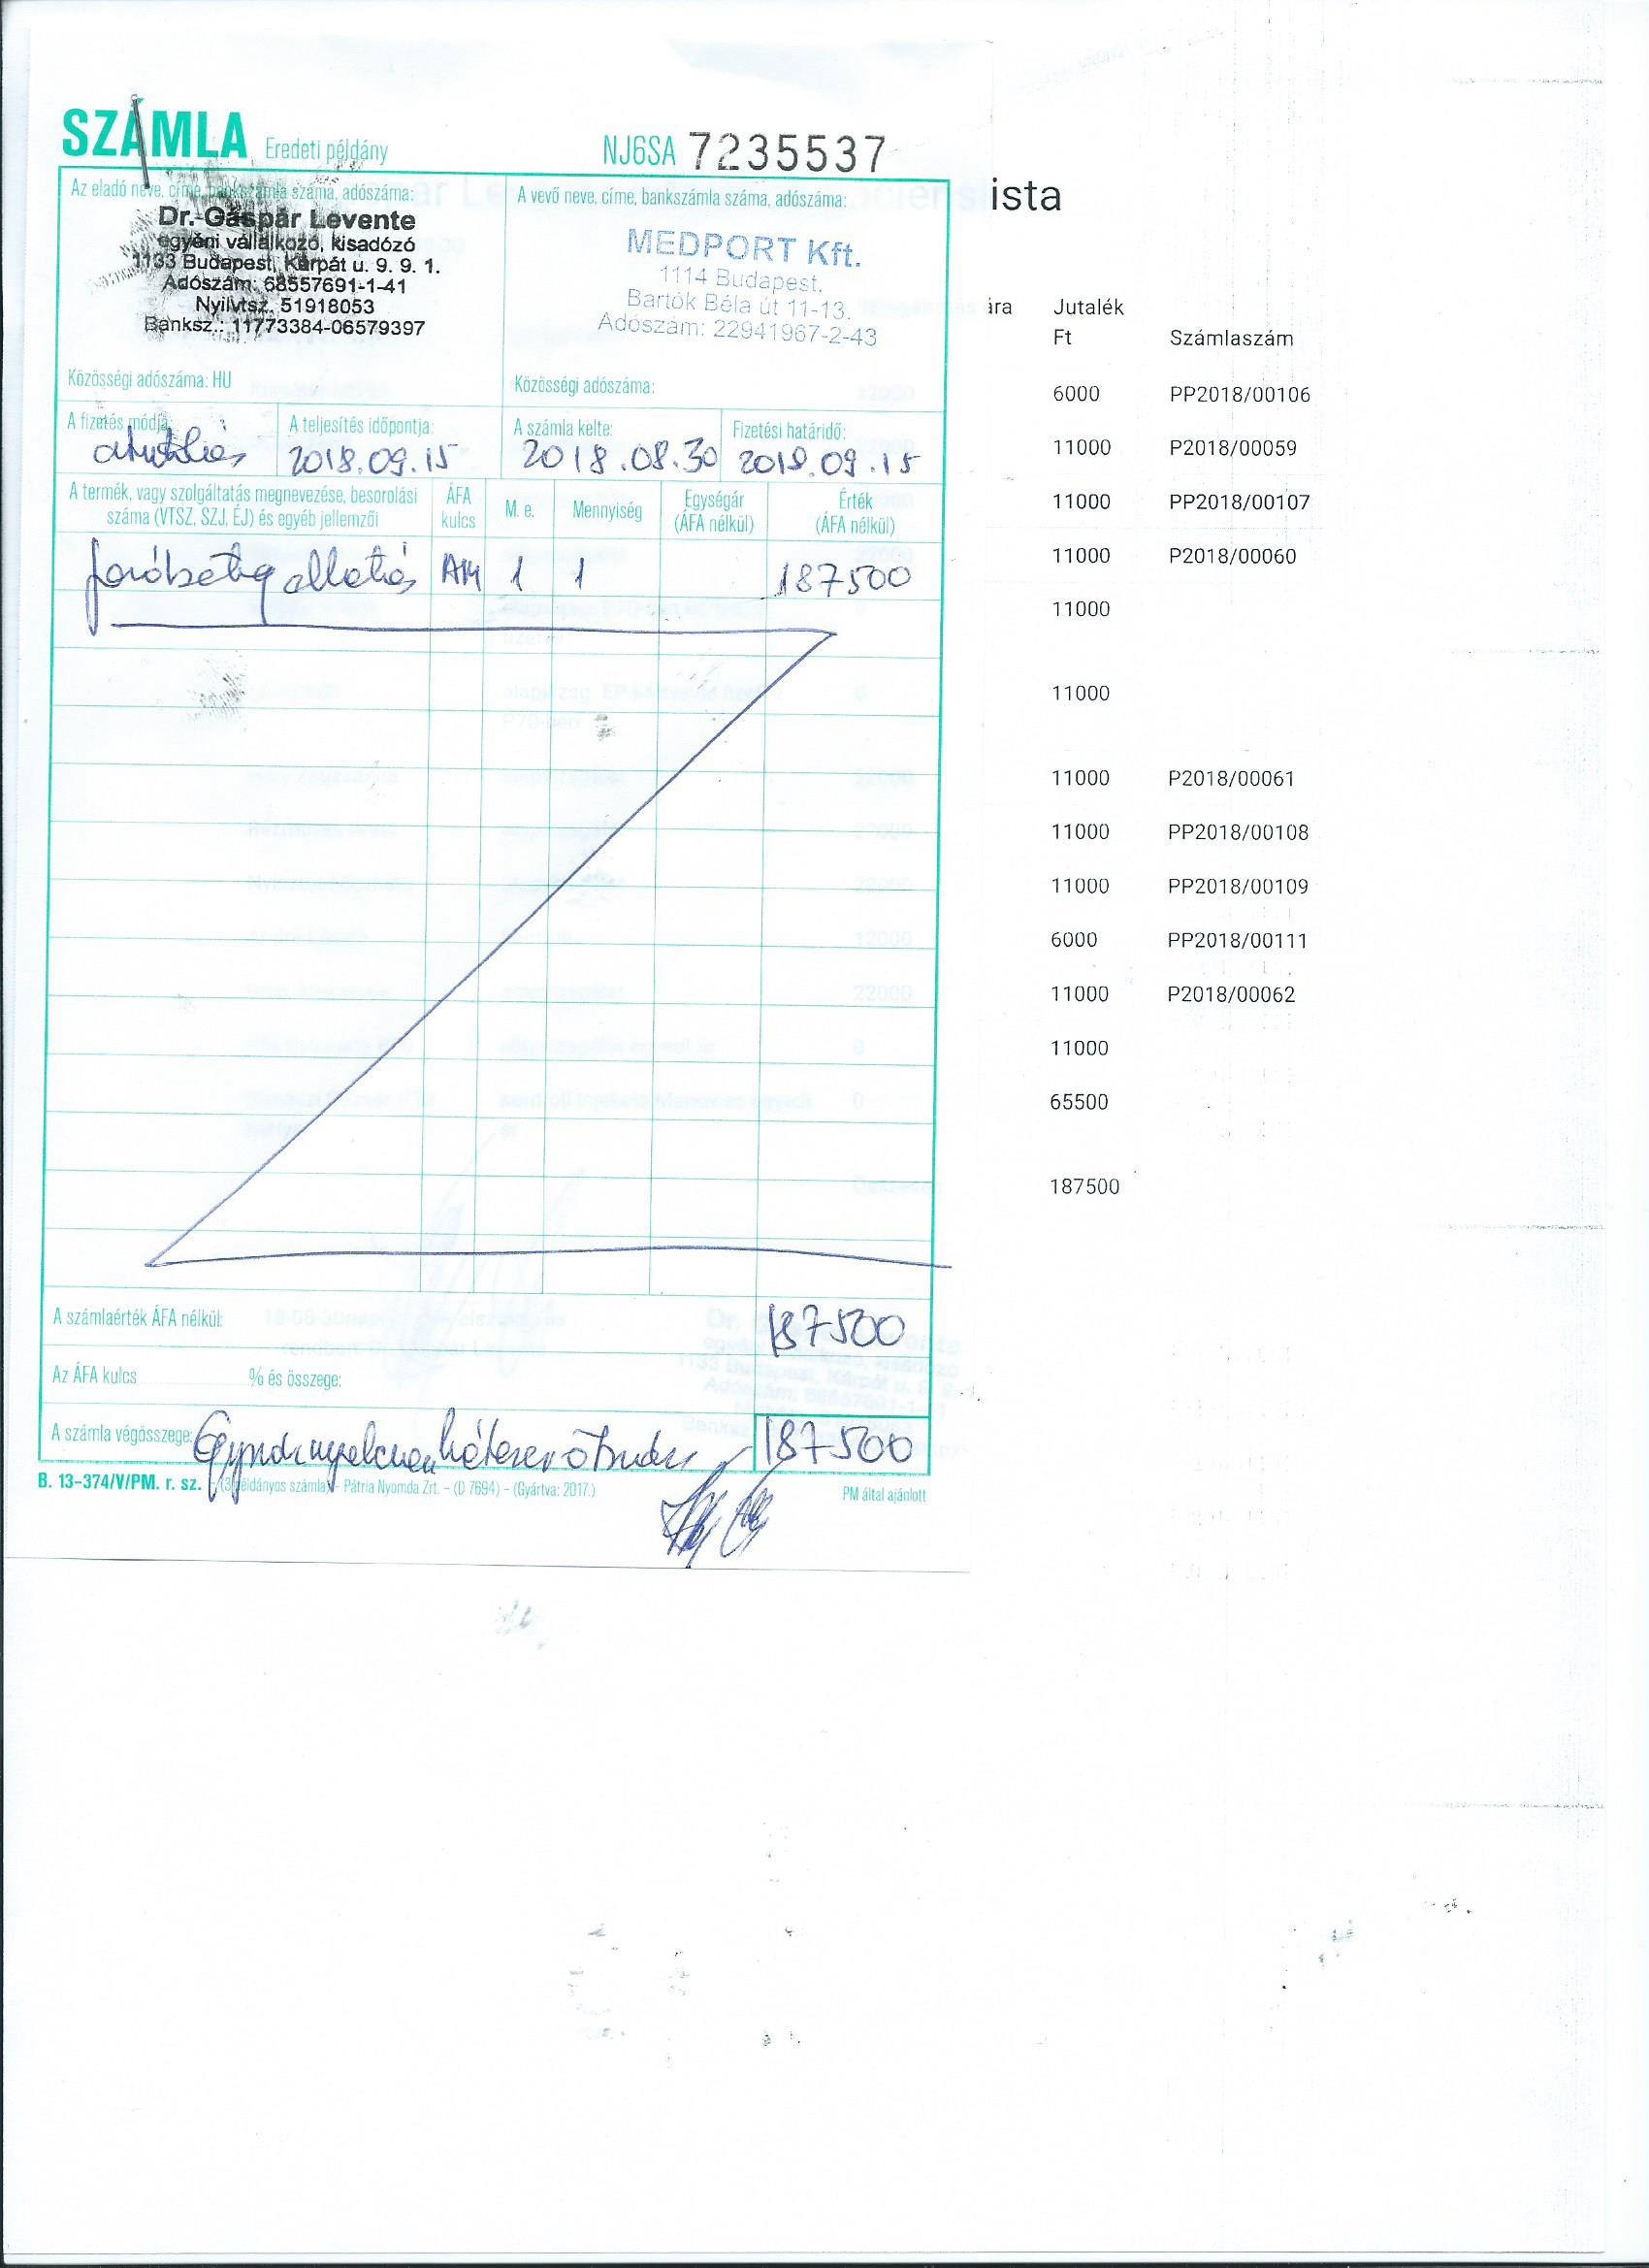 SZÁMLA Eredeti példány NJ6SA 7235537
Az eladó neve, címe, bankszámla száma, adószáma:
Dr. Gáspár Levente
egyéni vállalkozó, kisadózó
1133 Budapest, Kárpát u. 9. 9. 1.
Adószám: 68557691-1-41
Nyilvtsz. 51918053
Banksz.: 11773384-06579397
Közösségi adószáma: HU
A vevő neve, címe, bankszámla száma, adószáma:
MEDPORT Kft.
1114 Budapest,
Bartók Béla út 11-13.
Adószám: 22941967-2-43
Közösségi adószáma:
A fizetés módja: A teljesítés időpontja: A számla kelte: Fizetési határidő:
átutalás 2018.09.15 2018.08.30 2018.09.15
A termék, vagy szolgáltatás megnevezése, besorolási száma (VTSZ, SZJ, ÉJ) és egyéb jellemzői
ÁFA kulcs
M. e.
Mennyiség
Egységár (ÁFA nélkül)
Érték (ÁFA nélkül)
járóbeteg ellátás AM 1 1 187500
A számlaérték ÁFA nélkül: 187500
Az ÁFA kulcs % és összege:
A számla végösszege: 187500
B. 13-374/V/PM. r. sz. (3 példányos számla) - Pátria Nyomda Zrt. - (D 7694) - (Gyártva: 2017.) PM által ajánlott
ista
ára Jutalék
Ft Számlaszám
6000 PP2018/00106
11000 P2018/00059
11000 PP2018/00107
11000 P2018/00060
11000
11000
11000 P2018/00061
11000 PP2018/00108
11000 PP2018/00109
6000 PP2018/00111
11000 P2018/00062
11000
65500
187500